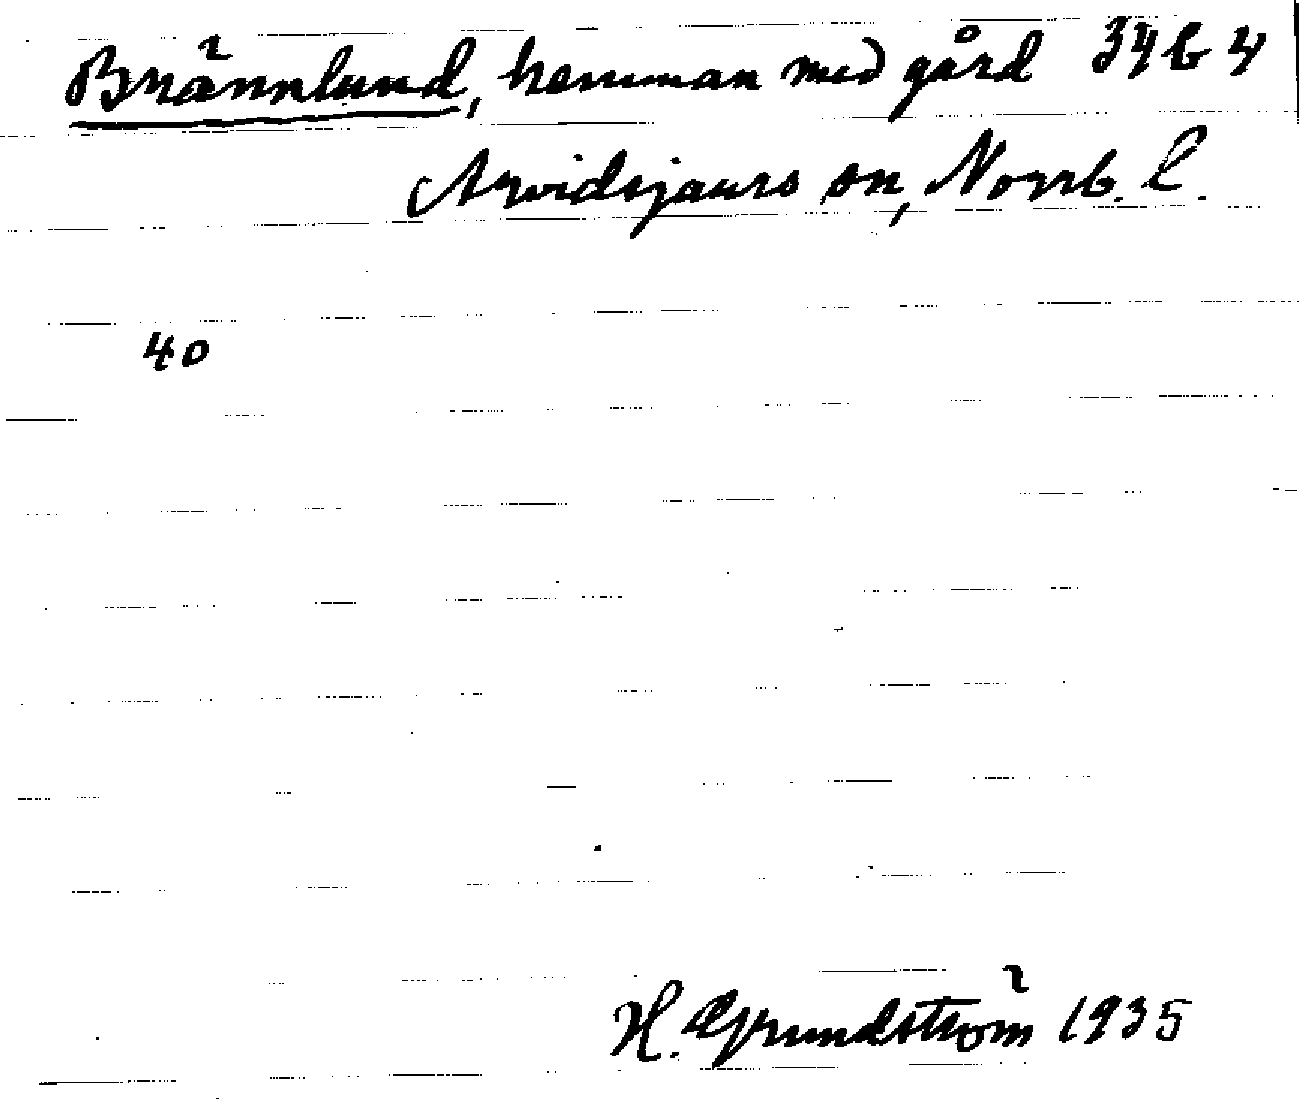 Brännlund, hemman med gård 34 b 4
Arvidsjaurs sn, Norrb. l.
40
H. Grundström 1935